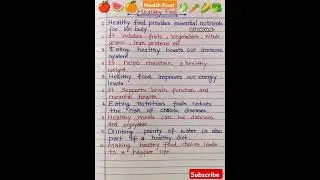 Health Food
Healthy Food
1. Healthy food provides essential nutrients
for our body.
2. It includes fruits, vegetables, whole
grains, lean proteins etc.
3. Eating healthy boosts our immune
system.
4. It helps maintain a healthy
weight.
5. Healthy food improves our energy
levels.
6. It supports brain function and
mental health.
7. Eating nutritious foods reduces
the risk of chronic diseases.
8. Healthy meals can be delicious
and enjoyable.
9. Drinking plenty of water is also
part of a healthy diet.
10. Making healthy food choices leads
to a happier life.
Subscribe